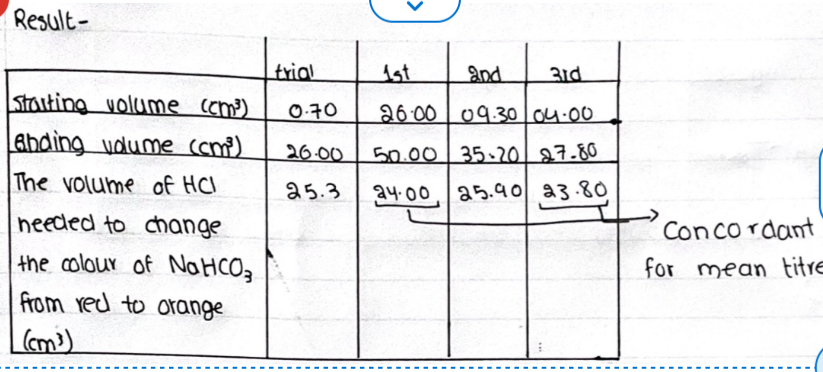 Result-
trial 1st 2nd 3rd
Starting volume (cm³) 0.70 26.00 09.30 04.00
Ending volume (cm³) 26.00 50.00 35.20 27.80
The volume of HCl 25.3 24.00 25.90 23.80
needed to change
the colour of NaHCO₃
from red to orange
(cm³)
Concordant
for mean titre